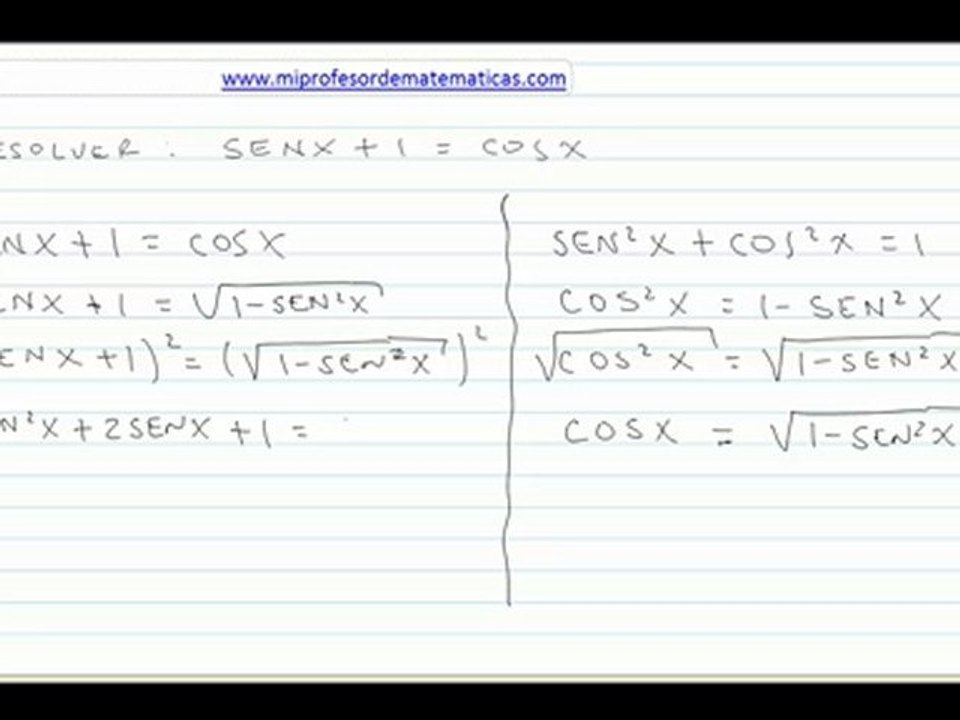 www.miprofesordematematicas.com
ESOLVER : SENX + 1 = COSX
NX + 1 = COSX
ENX + 1 = √(1-SEN²X)
ENX + 1)² = (√(1-SEN²X))²
N²X + 2SENX + 1 =
SEN²X + COS²X = 1
COS²X = 1 - SEN²X
√(COS²X) = √(1-SEN²X)
COSX = √(1-SEN²X)